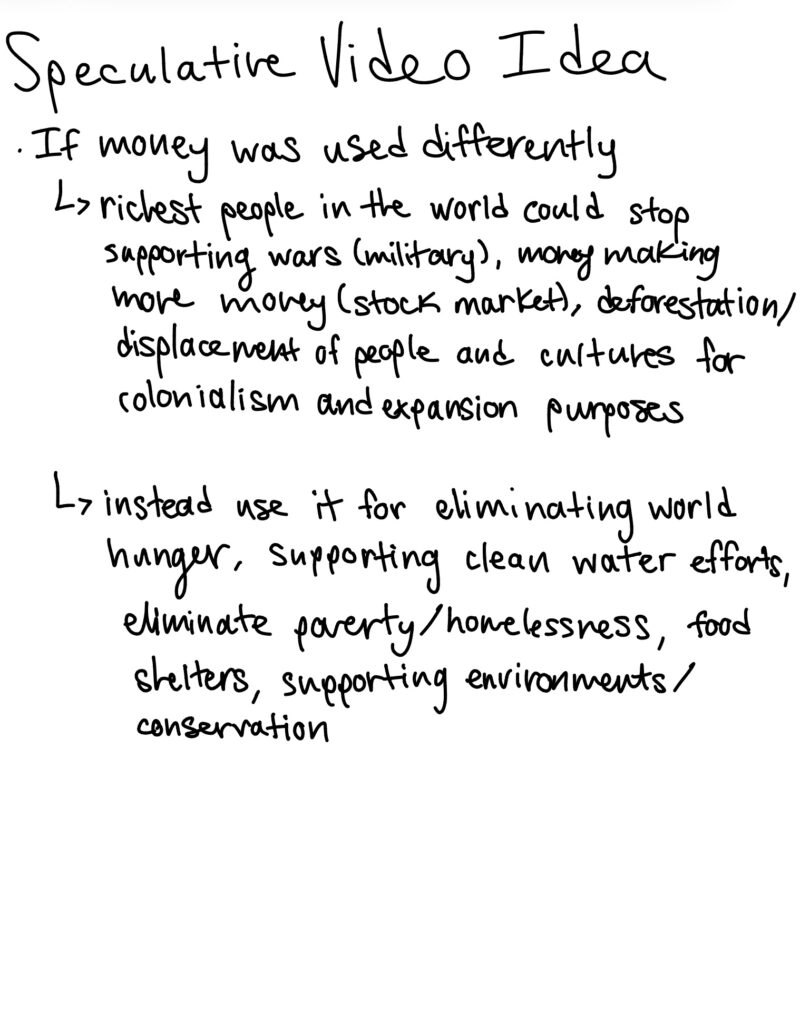 Speculative Video Idea
· If money was used differently
↳ richest people in the world could stop
supporting wars (military), money making
more money (stock market), deforestation/
displacement of people and cultures for
colonialism and expansion purposes
↳ instead use it for eliminating world
hunger, supporting clean water efforts,
eliminate poverty/homelessness, food
shelters, supporting environments/
conservation